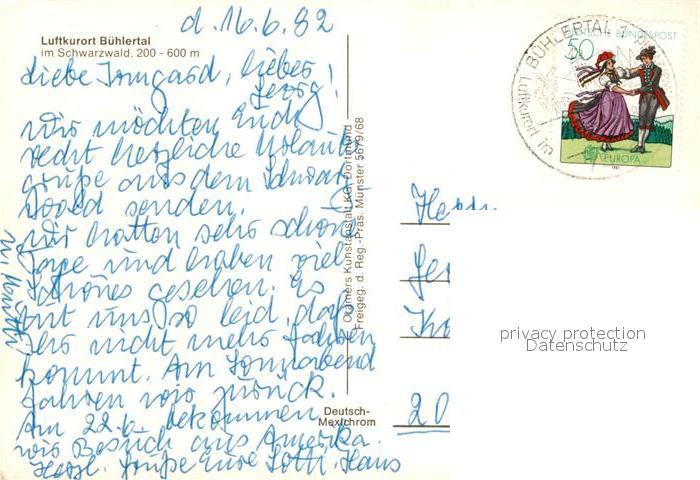 d. 16.6.82
Luftkurort Bühlertal
im Schwarzwald, 200 - 600 m
Liebe Irmgard, lieber
Georg!
Wir möchten Euch
recht herzliche Urlaubs-
grüße aus dem Schwarz-
wald senden.
Wir hatten sehr schöne
Tage und haben viel
Schönes gesehen. Es
tut uns so leid, daß
Ihr nicht mehr
kommt. Am Sonnabend
fahren wir zurück.
Am 22.6. bekommen
wir Besuch aus Amerika.
Herzl. Grüße Eure Lotti, Hans
Cramers Kunstanstalt KG, Dortmund
Freigeg. d. Reg.-Präs. Münster 5679/68
Deutsch-
Mexichrom
DEUTSCHE BUNDESPOST
50
EUROPA
BÜHLERTAL 1
Luftkurort im
Herrn
20
privacy protection
Datenschutz